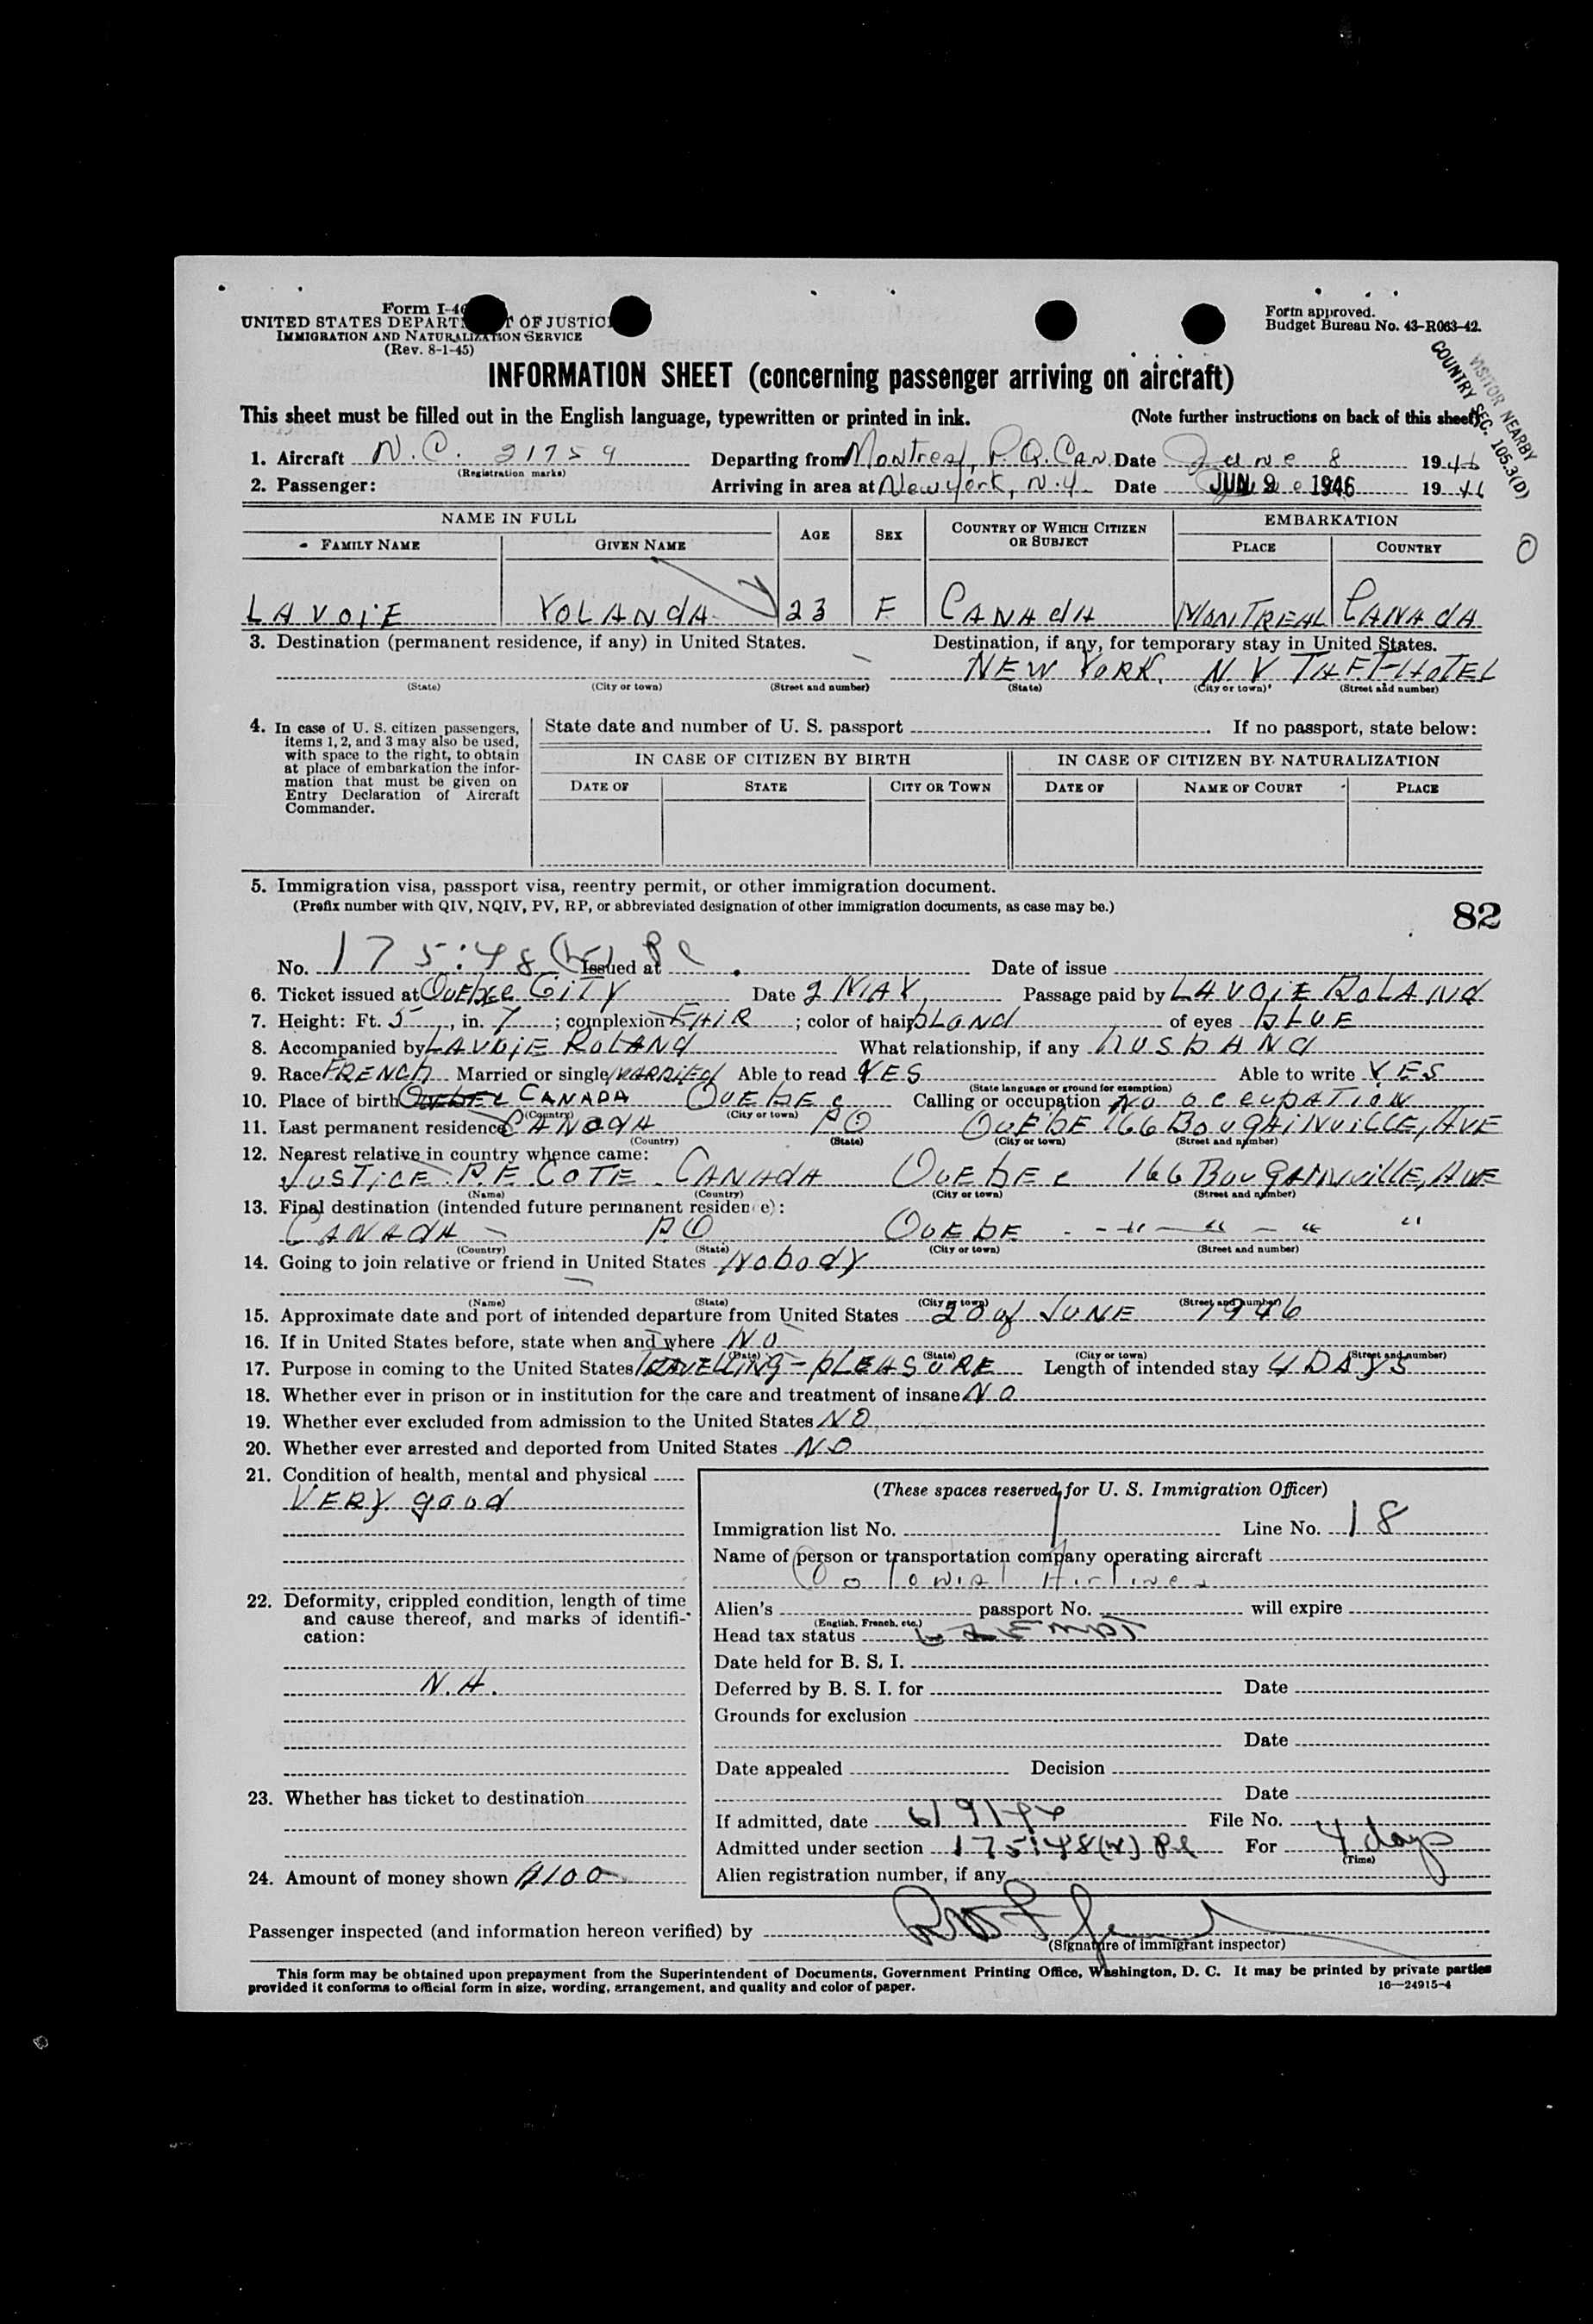 Form I-46
UNITED STATES DEPARTMENT OF JUSTICE
IMMIGRATION AND NATURALIZATION SERVICE
(Rev. 8-1-45)
Form approved.
Budget Bureau No. 43-R063-42.
VISITOR NEARBY
COUNTRY SEC. 105.3(D)
INFORMATION SHEET (concerning passenger arriving on aircraft)
This sheet must be filled out in the English language, typewritten or printed in ink. (Note further instructions on back of this sheet)
1. Aircraft N.C. 21759 Departing from Montreal, P.Q. Can. Date June 8 1946
(Registration marks)
2. Passenger: Arriving in area at New York, N.Y. Date JUN 9 1946 1946
NAME IN FULL AGE SEX COUNTRY OF WHICH CITIZEN OR SUBJECT EMBARKATION
FAMILY NAME GIVEN NAME PLACE COUNTRY
LAVOIE YOLANDA 23 F CANADA MONTREAL CANADA
3. Destination (permanent residence, if any) in United States. Destination, if any, for temporary stay in United States.
NEW YORK. N Y TAFT-HOTEL
(State) (City or town) (Street and number) (State) (City or town) (Street and number)
4. In case of U. S. citizen passengers, items 1, 2, and 3 may also be used, with space to the right, to obtain at place of embarkation the information that must be given on Entry Declaration of Aircraft Commander.
State date and number of U. S. passport If no passport, state below:
IN CASE OF CITIZEN BY BIRTH IN CASE OF CITIZEN BY NATURALIZATION
DATE OF STATE CITY OR TOWN DATE OF NAME OF COURT PLACE
5. Immigration visa, passport visa, reentry permit, or other immigration document.
(Prefix number with QIV, NQIV, PV, RP, or abbreviated designation of other immigration documents, as case may be.)
82
No. 175:48 Issued at Date of issue
6. Ticket issued at QUEBEC CITY Date 2 MAY Passage paid by LAVOIE ROLAND
7. Height: Ft. 5, in. 7; complexion FAIR; color of hair BLOND of eyes BLUE
8. Accompanied by LAVOIE ROLAND What relationship, if any HUSBAND
9. Race FRENCH Married or single MARRIED Able to read YES Able to write YES
(State language or ground for exemption)
10. Place of birth CANADA QUEBEC Calling or occupation NO OCCUPATION
(Country) (City or town)
11. Last permanent residence CANADA PQ QUEBE 166 BOUGAINVILLE, AVE
(Country) (State) (City or town) (Street and number)
12. Nearest relative in country whence came:
JUSTICE P.E. COTE CANADA QUEBEC 166 BOUGAINVILLE, AVE
(Name) (Country) (City or town) (Street and number)
13. Final destination (intended future permanent residence):
CANADA PQ QUEBE - " - " - " "
(Country) (State) (City or town) (Street and number)
14. Going to join relative or friend in United States Nobody
(Name) (State) (City or town) (Street and number)
15. Approximate date and port of intended departure from United States 20 of JUNE 1946
16. If in United States before, state when and where NO
(Date) (State) (City or town) (Street and number)
17. Purpose in coming to the United States TRAVELLING - PLEASURE Length of intended stay 4 DAYS
18. Whether ever in prison or in institution for the care and treatment of insane NO
19. Whether ever excluded from admission to the United States NO
20. Whether ever arrested and deported from United States NO
21. Condition of health, mental and physical
VERY good
22. Deformity, crippled condition, length of time and cause thereof, and marks of identification:
N.A.
23. Whether has ticket to destination
24. Amount of money shown $100
(These spaces reserved for U. S. Immigration Officer)
Immigration list No. Line No. 18
Name of person or transportation company operating aircraft
Colonial Airlines
Alien's passport No. will expire
(English, French, etc.)
Head tax status EXEMPT
Date held for B. S. I.
Deferred by B. S. I. for Date
Grounds for exclusion
Date
Date appealed Decision
Date
If admitted, date 6/9/46 File No.
Admitted under section 175:48 For 4 days
(Time)
Alien registration number, if any
Passenger inspected (and information hereon verified) by
(Signature of immigrant inspector)
This form may be obtained upon prepayment from the Superintendent of Documents, Government Printing Office, Washington, D. C. It may be printed by private parties
provided it conforms to official form in size, wording, arrangement, and quality and color of paper. 16—24915-4